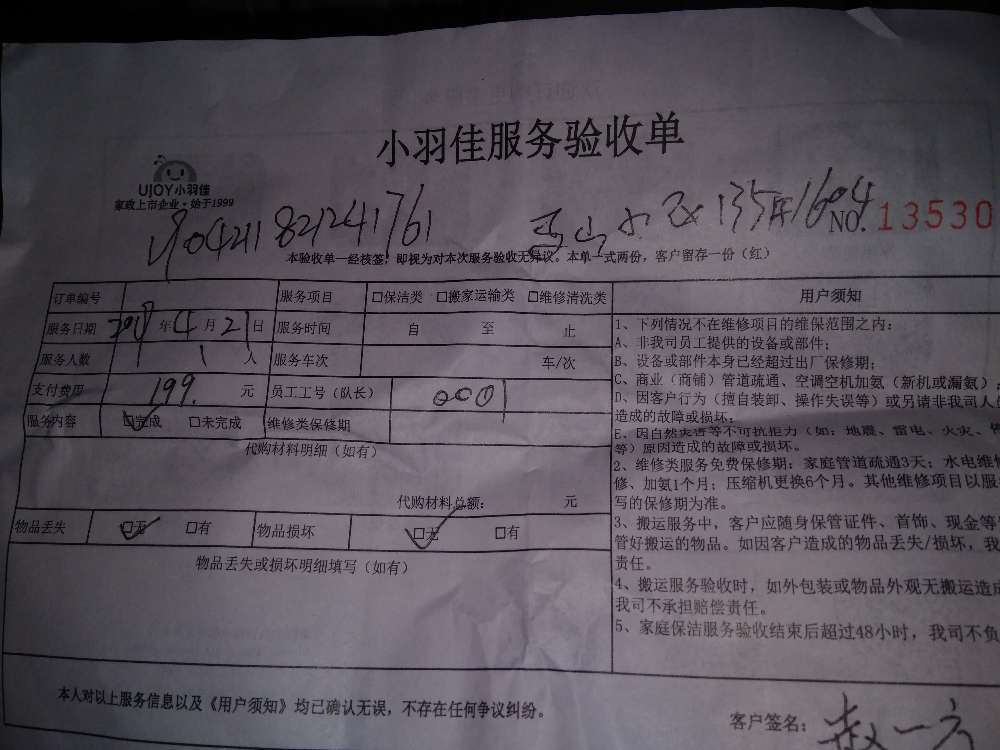 小羽佳服务验收单
UJOY小羽佳
家政上市企业·始于1999
1904211821241761
135 1604
NO. 13530
本验收单一经核签，即视为对本次服务验收无异议。本单一式两份，客户留存一份（红）
订单编号 服务项目 □保洁类 □搬家运输类 □维修清洗类
服务日期 2019年4月21日 服务时间 自 至 止
服务人数 1 人 服务车次 车/次
支付费用 199. 元 员工工号（队长） 0001
服务内容 ☑完成 □未完成 维修类保修期
代购材料明细（如有）
代购材料总额： 元
物品丢失 ☑无 □有 物品损坏 ☑无 □有
物品丢失或损坏明细填写（如有）
用户须知
1、下列情况不在维修项目的维保范围之内：
A、非我司员工提供的设备或部件；
B、设备或部件本身已经超过出厂保修期；
C、商业（商铺）管道疏通、空调空机加氨（新机或漏氨）
D、因客户行为（擅自装卸、操作失误等）或另请非我司人
造成的故障或损坏；
E、因自然灾害等不可抗拒力（如：地震、雷电、火灾、
等）原因造成的故障或损坏。
2、维修类服务免费保修期：家庭管道疏通3天；水电维
修、加氨1个月；压缩机更换6个月。其他维修项目以服
写的保修期为准。
3、搬运服务中，客户应随身保管证件、首饰、现金等
管好搬运的物品。如因客户造成的物品丢失/损坏，我
责任。
4、搬运服务验收时，如外包装或物品外观无搬运造成
我司不承担赔偿责任。
5、家庭保洁服务验收结束后超过48小时，我司不负
本人对以上服务信息以及《用户须知》均已确认无误，不存在任何争议纠纷。
客户签名：赵一方